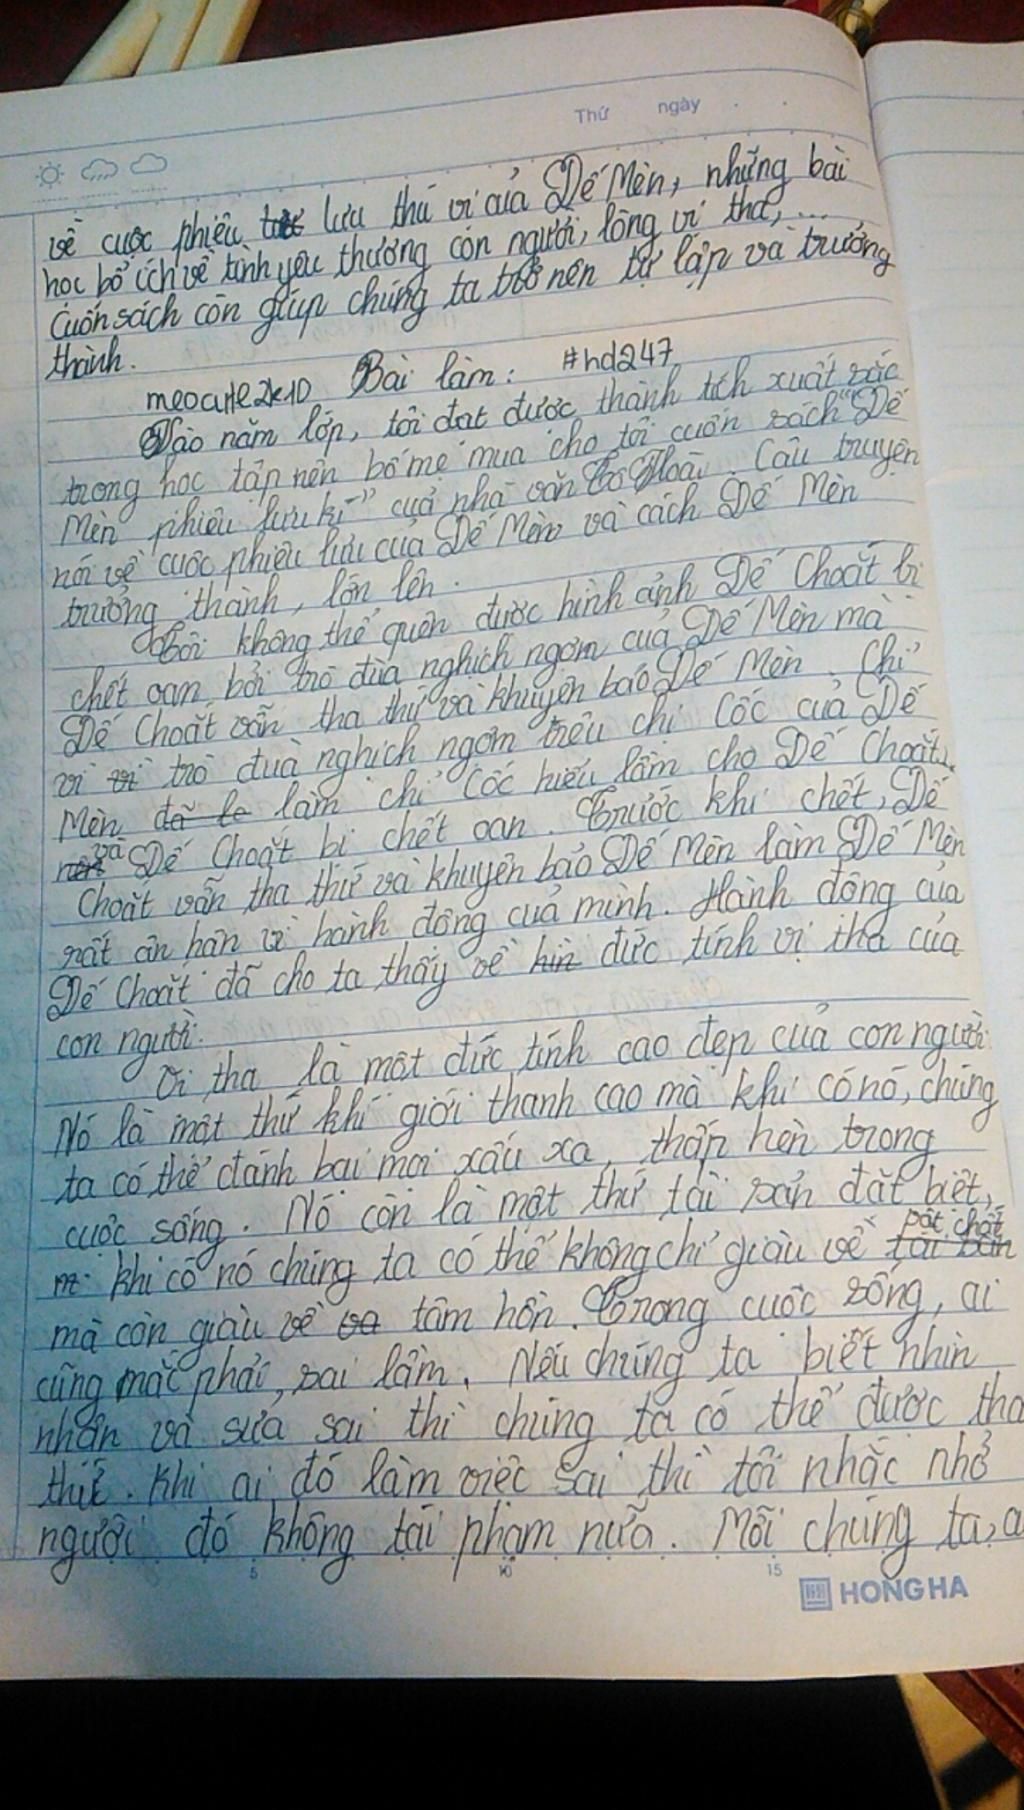 Thứ ngày
về cuộc phiêu lưu thú vị của Dế Mèn, những bài
học bổ ích về tình yêu thương con người, lòng vị tha,...
Cuốn sách còn giúp chúng ta trở nên tự lập và trưởng
thành.
meocute2k10 Bài làm: #hd247
Vào năm lớp, tôi đạt được thành tích xuất sắc
trong học tập nên bố mẹ mua cho tôi cuốn sách "Dế
Mèn phiêu lưu kí" của nhà văn Tô Hoài. Câu truyện
nói về cuộc phiêu lưu của Dế Mèn và cách Dế Mèn
trưởng thành, lớn lên.
Tôi không thể quên được hình ảnh Dế Choắt bị
chết oan bởi trò đùa nghịch ngợm của Dế Mèn mà
Dế Choắt vẫn tha thứ và khuyên bảo Dế Mèn. Chỉ
vì vì trò đùa nghịch ngợm trêu chị Cốc của Dế
Mèn đã là làm chị Cốc hiểu lầm cho Dế Choắt
và Dế Choắt bị chết oan. Trước khi chết, Dế
Choắt vẫn tha thứ và khuyên bảo Dế Mèn làm Dế Mèn
rất ân hận vì hành động của mình. Hành động của
Dế Choắt đã cho ta thấy về hìn đức tính vị tha của
con người.
Vị tha là một đức tính cao đẹp của con người.
Nó là một thứ khí giới thanh cao mà khi có nó, chúng
ta có thể đánh bại mọi xấu xa, thấp hèn trong
cuộc sống. Nó còn là một thứ tài sản đặt biệt,
khi có nó chúng ta có thể không chỉ giàu về tài sản vật chất
mà còn giàu về va tâm hồn. Trong cuộc sống, ai
cũng mắc phải, sai lầm. Nếu chúng ta biết nhìn
nhận và sửa sai thì chúng ta có thể được tha
thứ. Khi ai đó làm việc sai thì tôi nhắc nhở
người đó không tái phạm nữa. Mỗi chúng ta, a
5 10 15
HONG HA